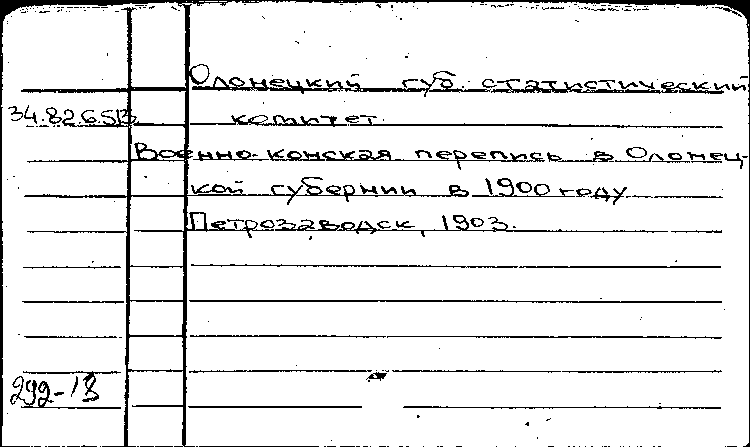 Олонецкий губ. статистический
34.8265В комитет.
Военно-конская перепись в Олонец-
кой губернии в 1900 году
Петрозаводск, 1903.
292-13